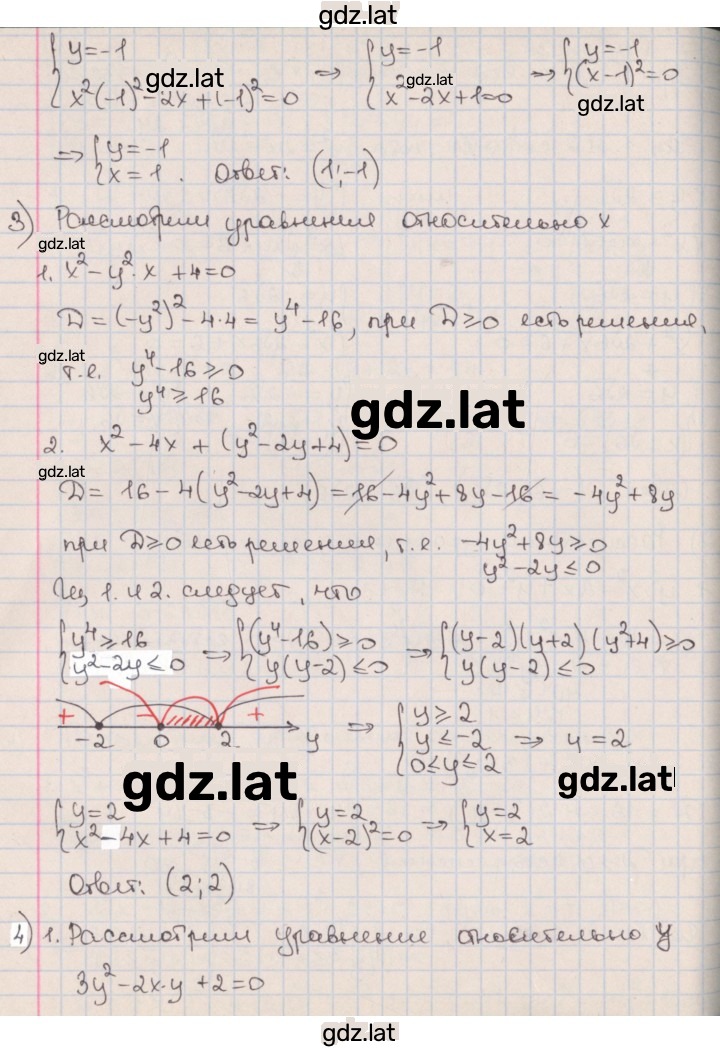 gdz.lat
{ y=-1 { x²(-1)²-2x+(-1)²=0 ⇒ { y=-1 { x²-2x+1=0 ⇒ { y=-1 { (x-1)²=0
gdz.lat
gdz.lat
gdz.lat
⇒ { y=-1 { x=1. Ответ: (1;-1)
3) Рассмотрим уравнения относительно x
gdz.lat
1. x²-y²·x+4=0
D=(-y²)²-4·4=y⁴-16, при D≥0 есть решения,
gdz.lat
т.е. y⁴-16≥0
y⁴≥16
gdz.lat
2. x²-4x+(y²-2y+4)=0
gdz.lat
D=16-4(y²-2y+4)=16-4y²+8y-16=-4y²+8y
при D≥0 есть решения, т.е. -4y²+8y≥0
y²-2y≤0
Из 1. и 2. следует, что
{ y⁴≥16 { y²-2y≤0 ⇒ { (y⁴-16)≥0 { y(y-2)≤0 ⇒ { (y-2)(y+2)(y²+4)≥0 { y(y-2)≤0
+ - +
-2 0 2 y
⇒ { y≥2 { y≤-2 { 0≤y≤2 ⇒ y=2
gdz.lat
gdz.lat
{ y=2 { x²-4x+4=0 ⇒ { y=2 { (x-2)²=0 ⇒ { y=2 { x=2
Ответ: (2;2)
4) 1. Рассмотрим уравнение относительно y
3y²-2x·y+2=0
gdz.lat